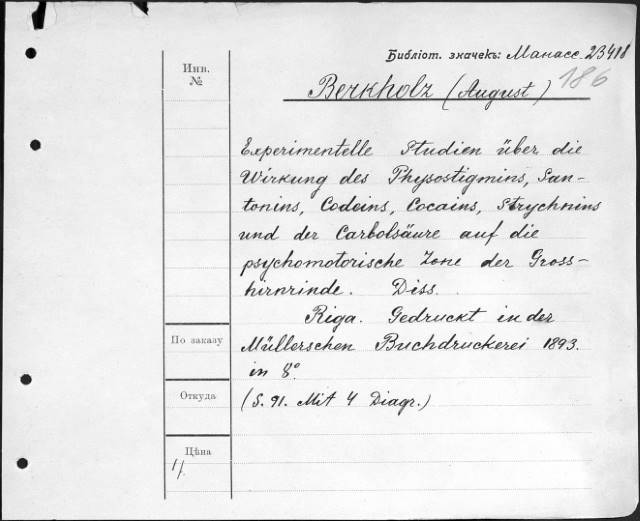 Библіот. значекъ: Манасс. 23418
186
Инв.
№
Berkholz (August)
Experimentelle Studien über die
Wirkung des Physostigmins, San-
tonins, Codeins, Cocains, Strychnins
und der Carbolsäure auf die
psychomotorische Zone der Gross-
hirnrinde. Diss.
Riga. Gedruckt in der
Müllerschen Buchdruckerei 1893.
in 8°.
(S. 91. Mit 4 Diagr.)
По заказу
Откуда
Цѣна
1/